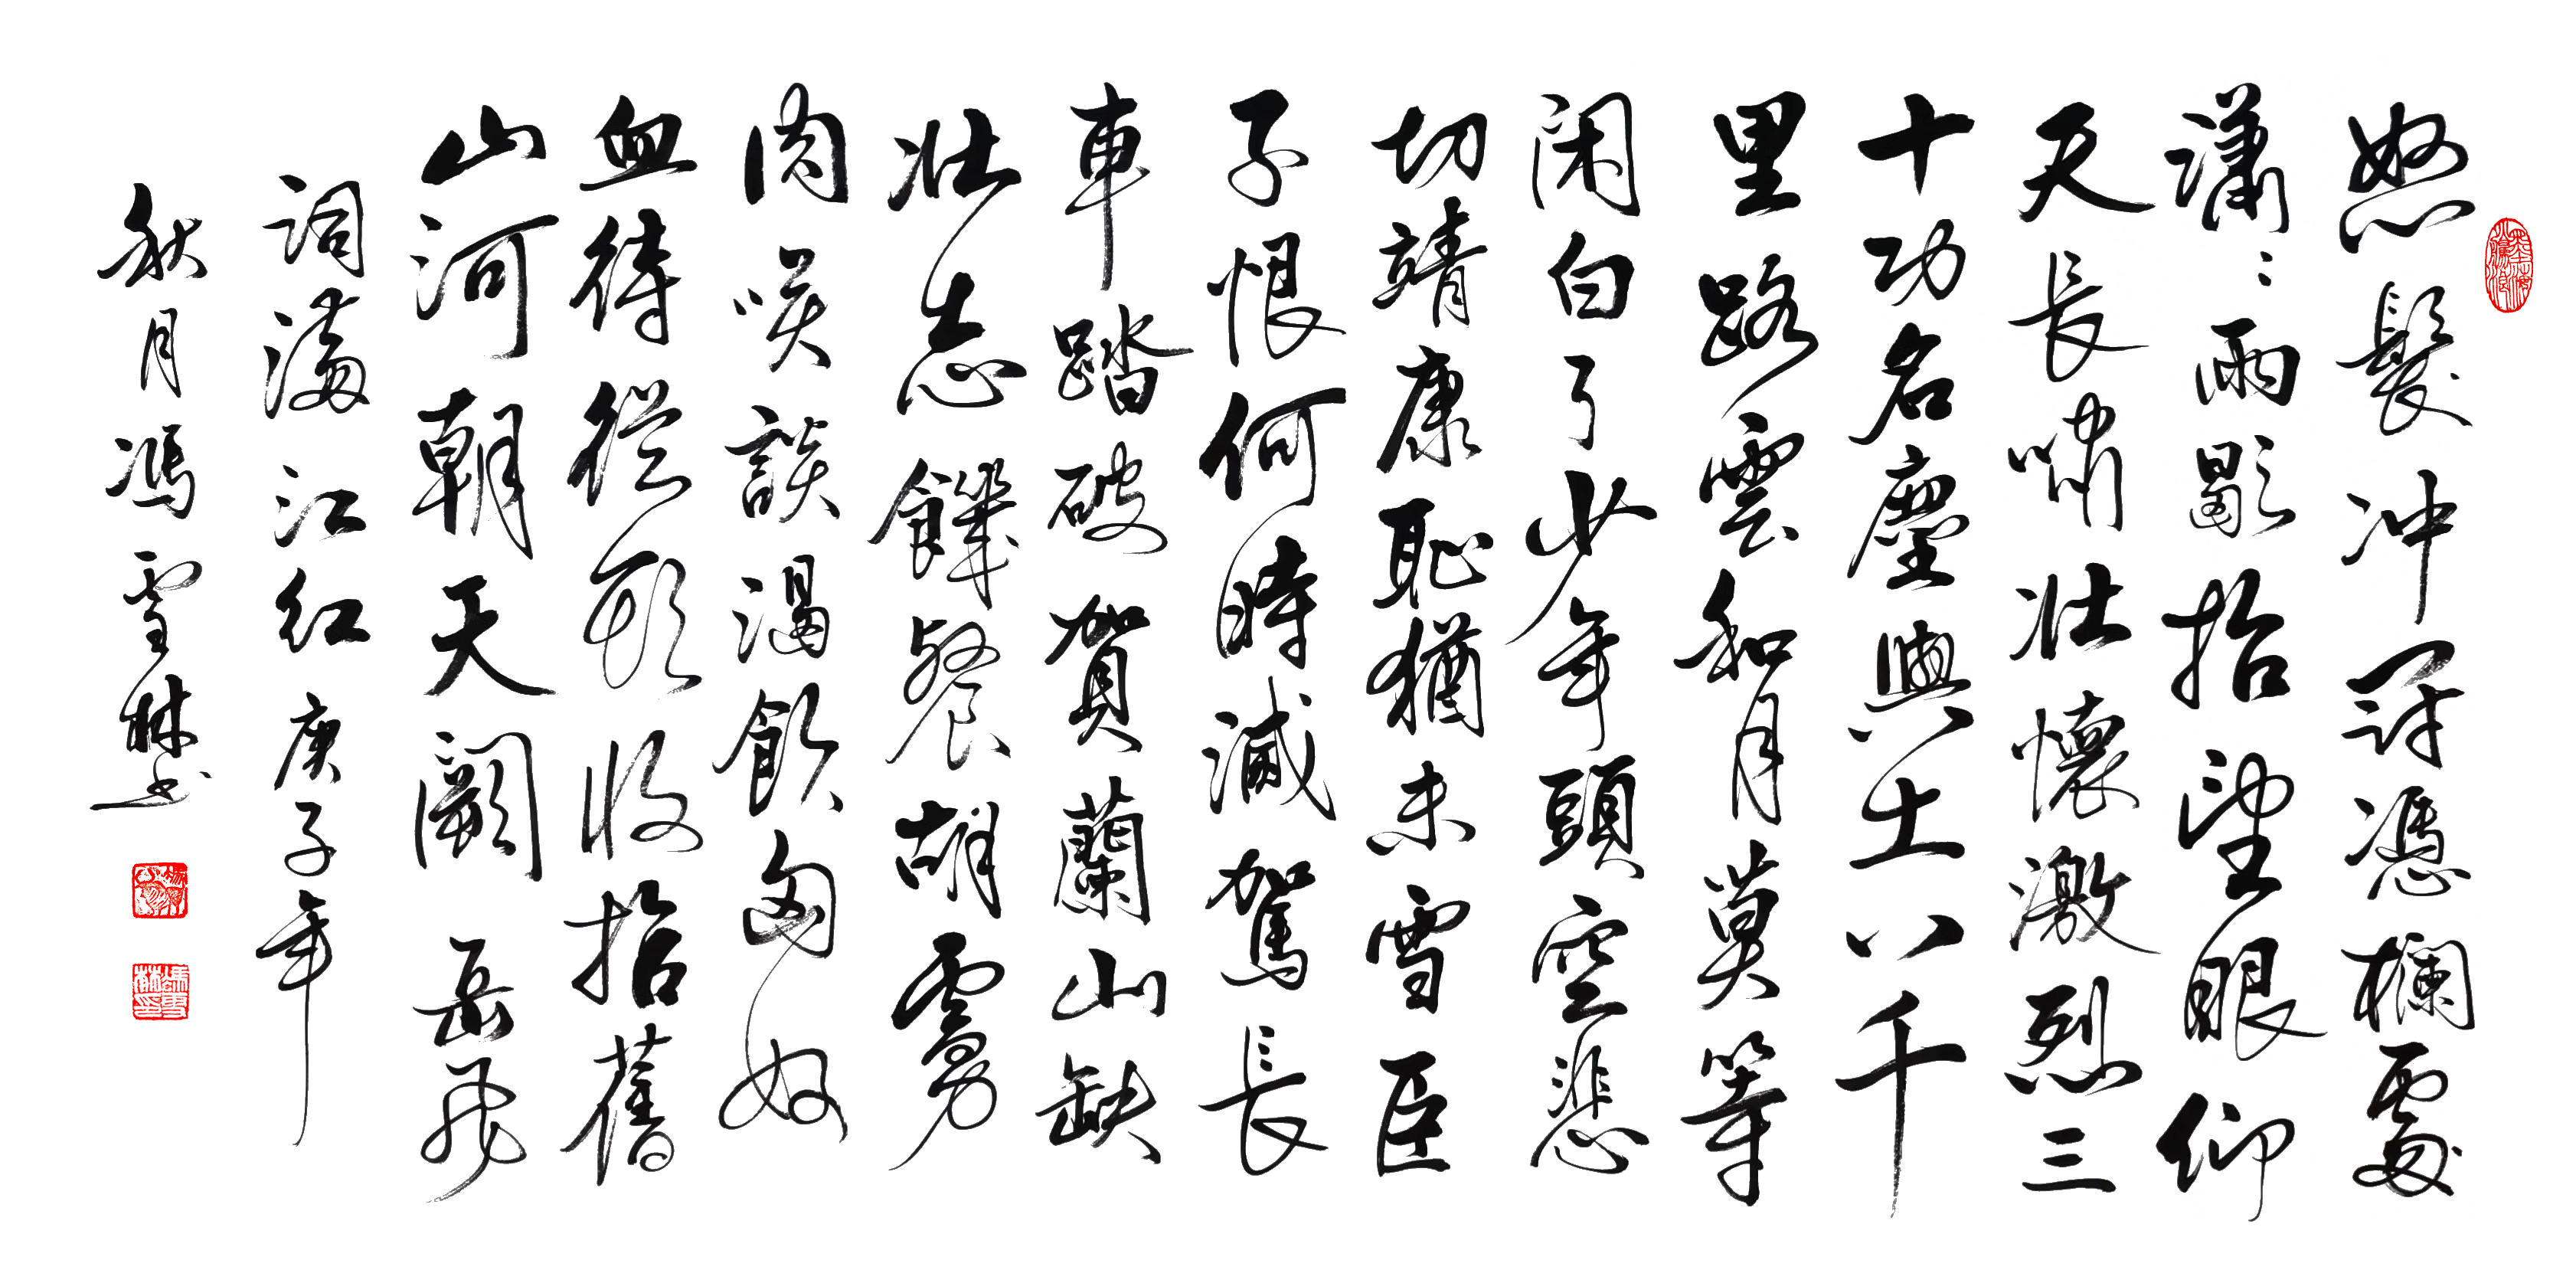 怒髮冲冠憑欄處
瀟〻雨歇抬望眼仰
天長嘯壯懷激烈三
十功名塵與土八千
里路雲和月莫等
闲白了少年頭空悲
切靖康耻猶未雪臣
子恨何時滅駕長
車踏破賀蘭山缺
壯志饑餐胡虜
肉咲談渴飲匈奴
血待從頭收拾舊
山河朝天闕 岳飛
詞滿江红 庚子年
秋月馮雪林书
馮雪林印